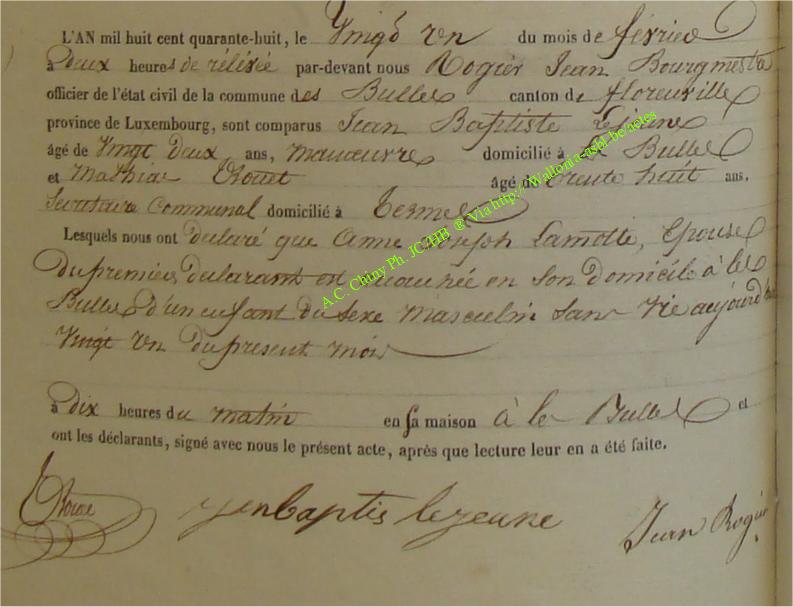 L'AN mil huit cent quarante-huit, le Vingt Un du mois de février
à Deux heures de rélévée par-devant nous Rogier Jean Bourgmestre
officier de l'état civil de la commune des Bulles canton de florenville
province de Luxembourg, sont comparus Jean Baptiste Lejeune
âgé de Vingt Deux ans, manœuvre domicilié à les Bulles
et Mathias âgé de trente huit ans.
Secrétaire Communal domicilié à termes
Lesquels nous ont declaré que Anne Joseph Lamotte, Epouse
Du premier declarant est accouchée en son domicile à les
Bulles d'un enfant du sexe Masculin sans vie aujourd'hui
Vingt Un du présent mois
à dix heures du matin en sa maison à les Bulles et
ont les déclarants, signé avec nous le présent acte, après que lecture leur en a été faite.
jenbaptis lejeune
Jean Rogier
A.C. Chiny Ph. JC.HB @ Via http://Wallonia-asbl.be/actes